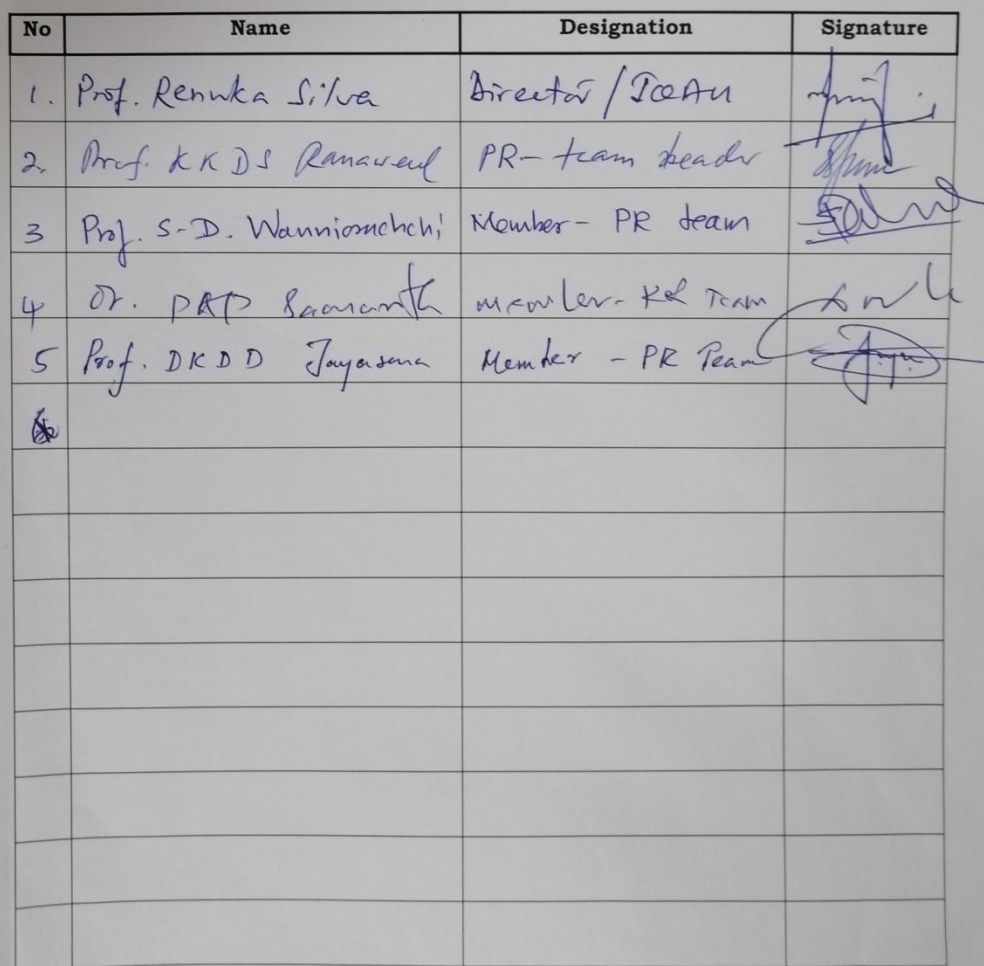 No Name Designation Signature
1. Prof. Renuka Silva Director / IQAU
2. Prof. KKDS Ranaweera PR- team Leader
3 Prof. S.D. Wanniarachchi Member - PR team
4 Dr. PAP Samantha Member - Team
5 Prof. DKDD Jayasena Member - PR Team